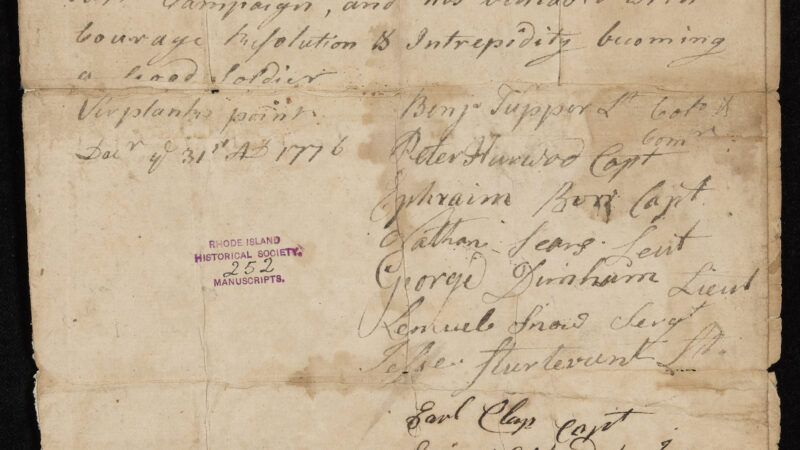 Campaign, and his behavd with
Courage Resolution & Intrepidity becoming
a Good Soldier
Virplanks point
Decr ye 31st AD 1776
Benja Tupper Lt Colo &
Comr
Peter Harwod Capt
Ephraim Burr Capt
Nathan Sears Leut
George Dunham Lieut
Lemuel Snow Sergt
Jesse Sturtevant Lt.
Earl Clap Capt
RHODE ISLAND
HISTORICAL SOCIETY.
252
MANUSCRIPTS.